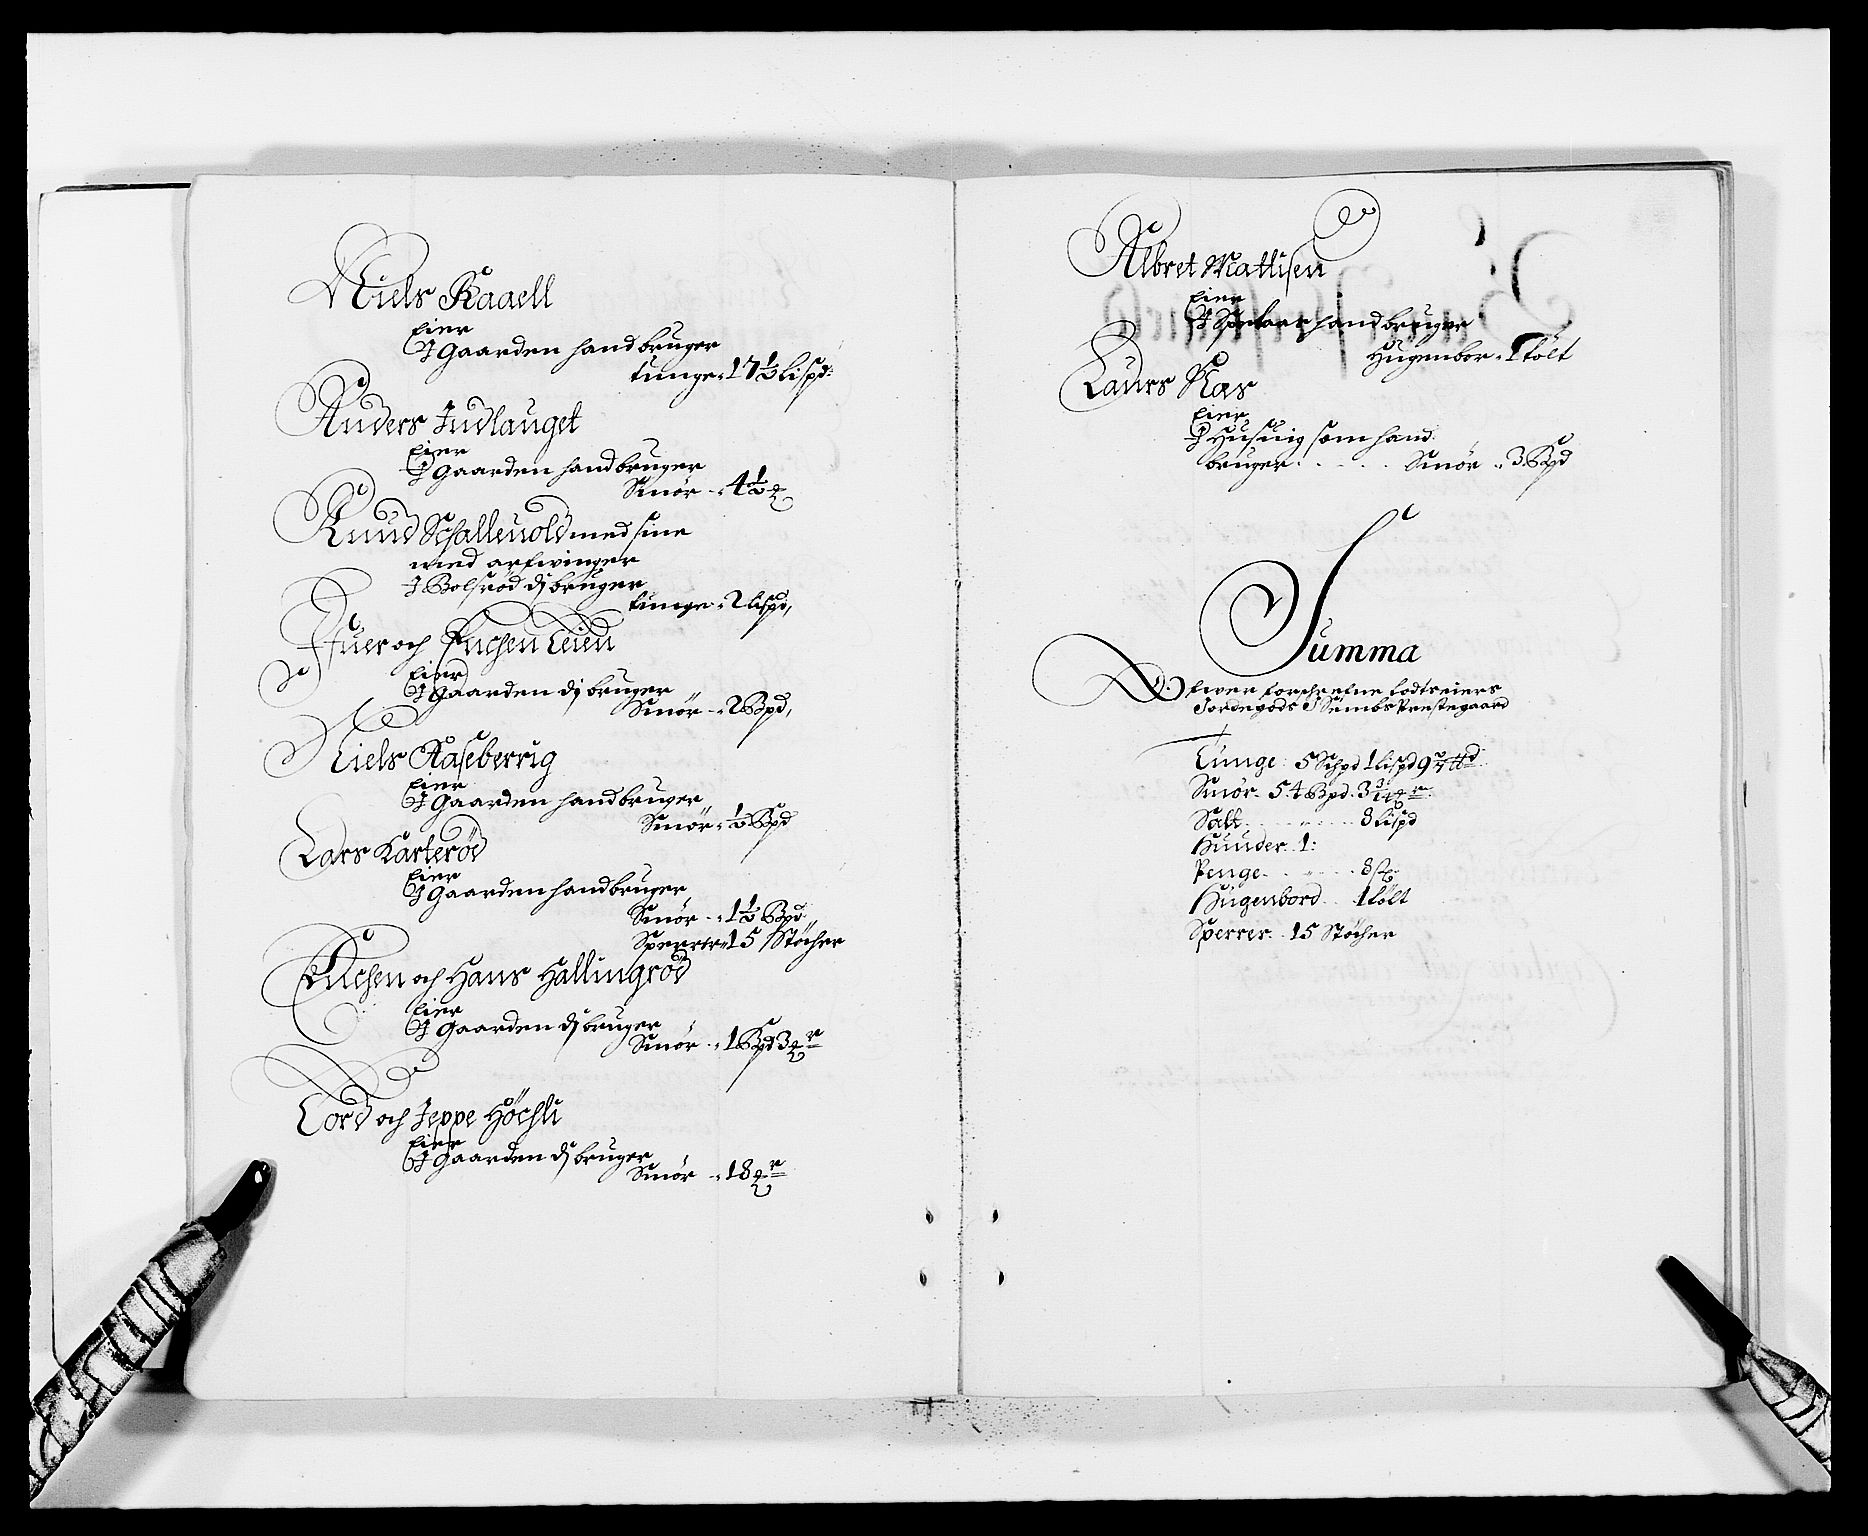 Niels Kaaell
Eier
J Gaarden hand bruger
tunge 17½ lispd:
Anders Indlauget
Eier
J Gaarden hand bruger
Smör 4½
Knud Schalleuold med sine
med arfwinger
J Bolsröd dj bruger
tunge 2 lispd,
Jfuer och Anchen Leien
Eier
J Gaarden dj bruger
Smör 2 Bpd,
Niels Raseberrig
Eier
J Gaarden hand bruger
Smör ½ Bpd
Lars Karteröd
Eier
J Gaarden hand bruger
Smör 1½ Bpd:
Sperrer 15 Stöcher
Anchen och Hans Hallingröd
Eier
J Gaarden dj bruger
Smör 1 Bpd 3
Tord och Jeppe Höchli
Eier
J Gaarden dj bruger
Smör 18
Albret Mattisen
Eier
J hand bruger
Hugenbor 1 tölt
Laurs Kas
Eier
J Husuig som hand
bruger . . . . . Smör 3 Bpd
Summa
Ofwer forschrefne Lodtseiers
Jordegods J Sembs Prestegaard
Tunge 5 Schpd 1 lispd 9
Smör 54 Bpd. 3
Salt 8 lispd
Huuder 1:
Penge 8
Hugenbord 1 tölt
Sperrer 15 Stöcher